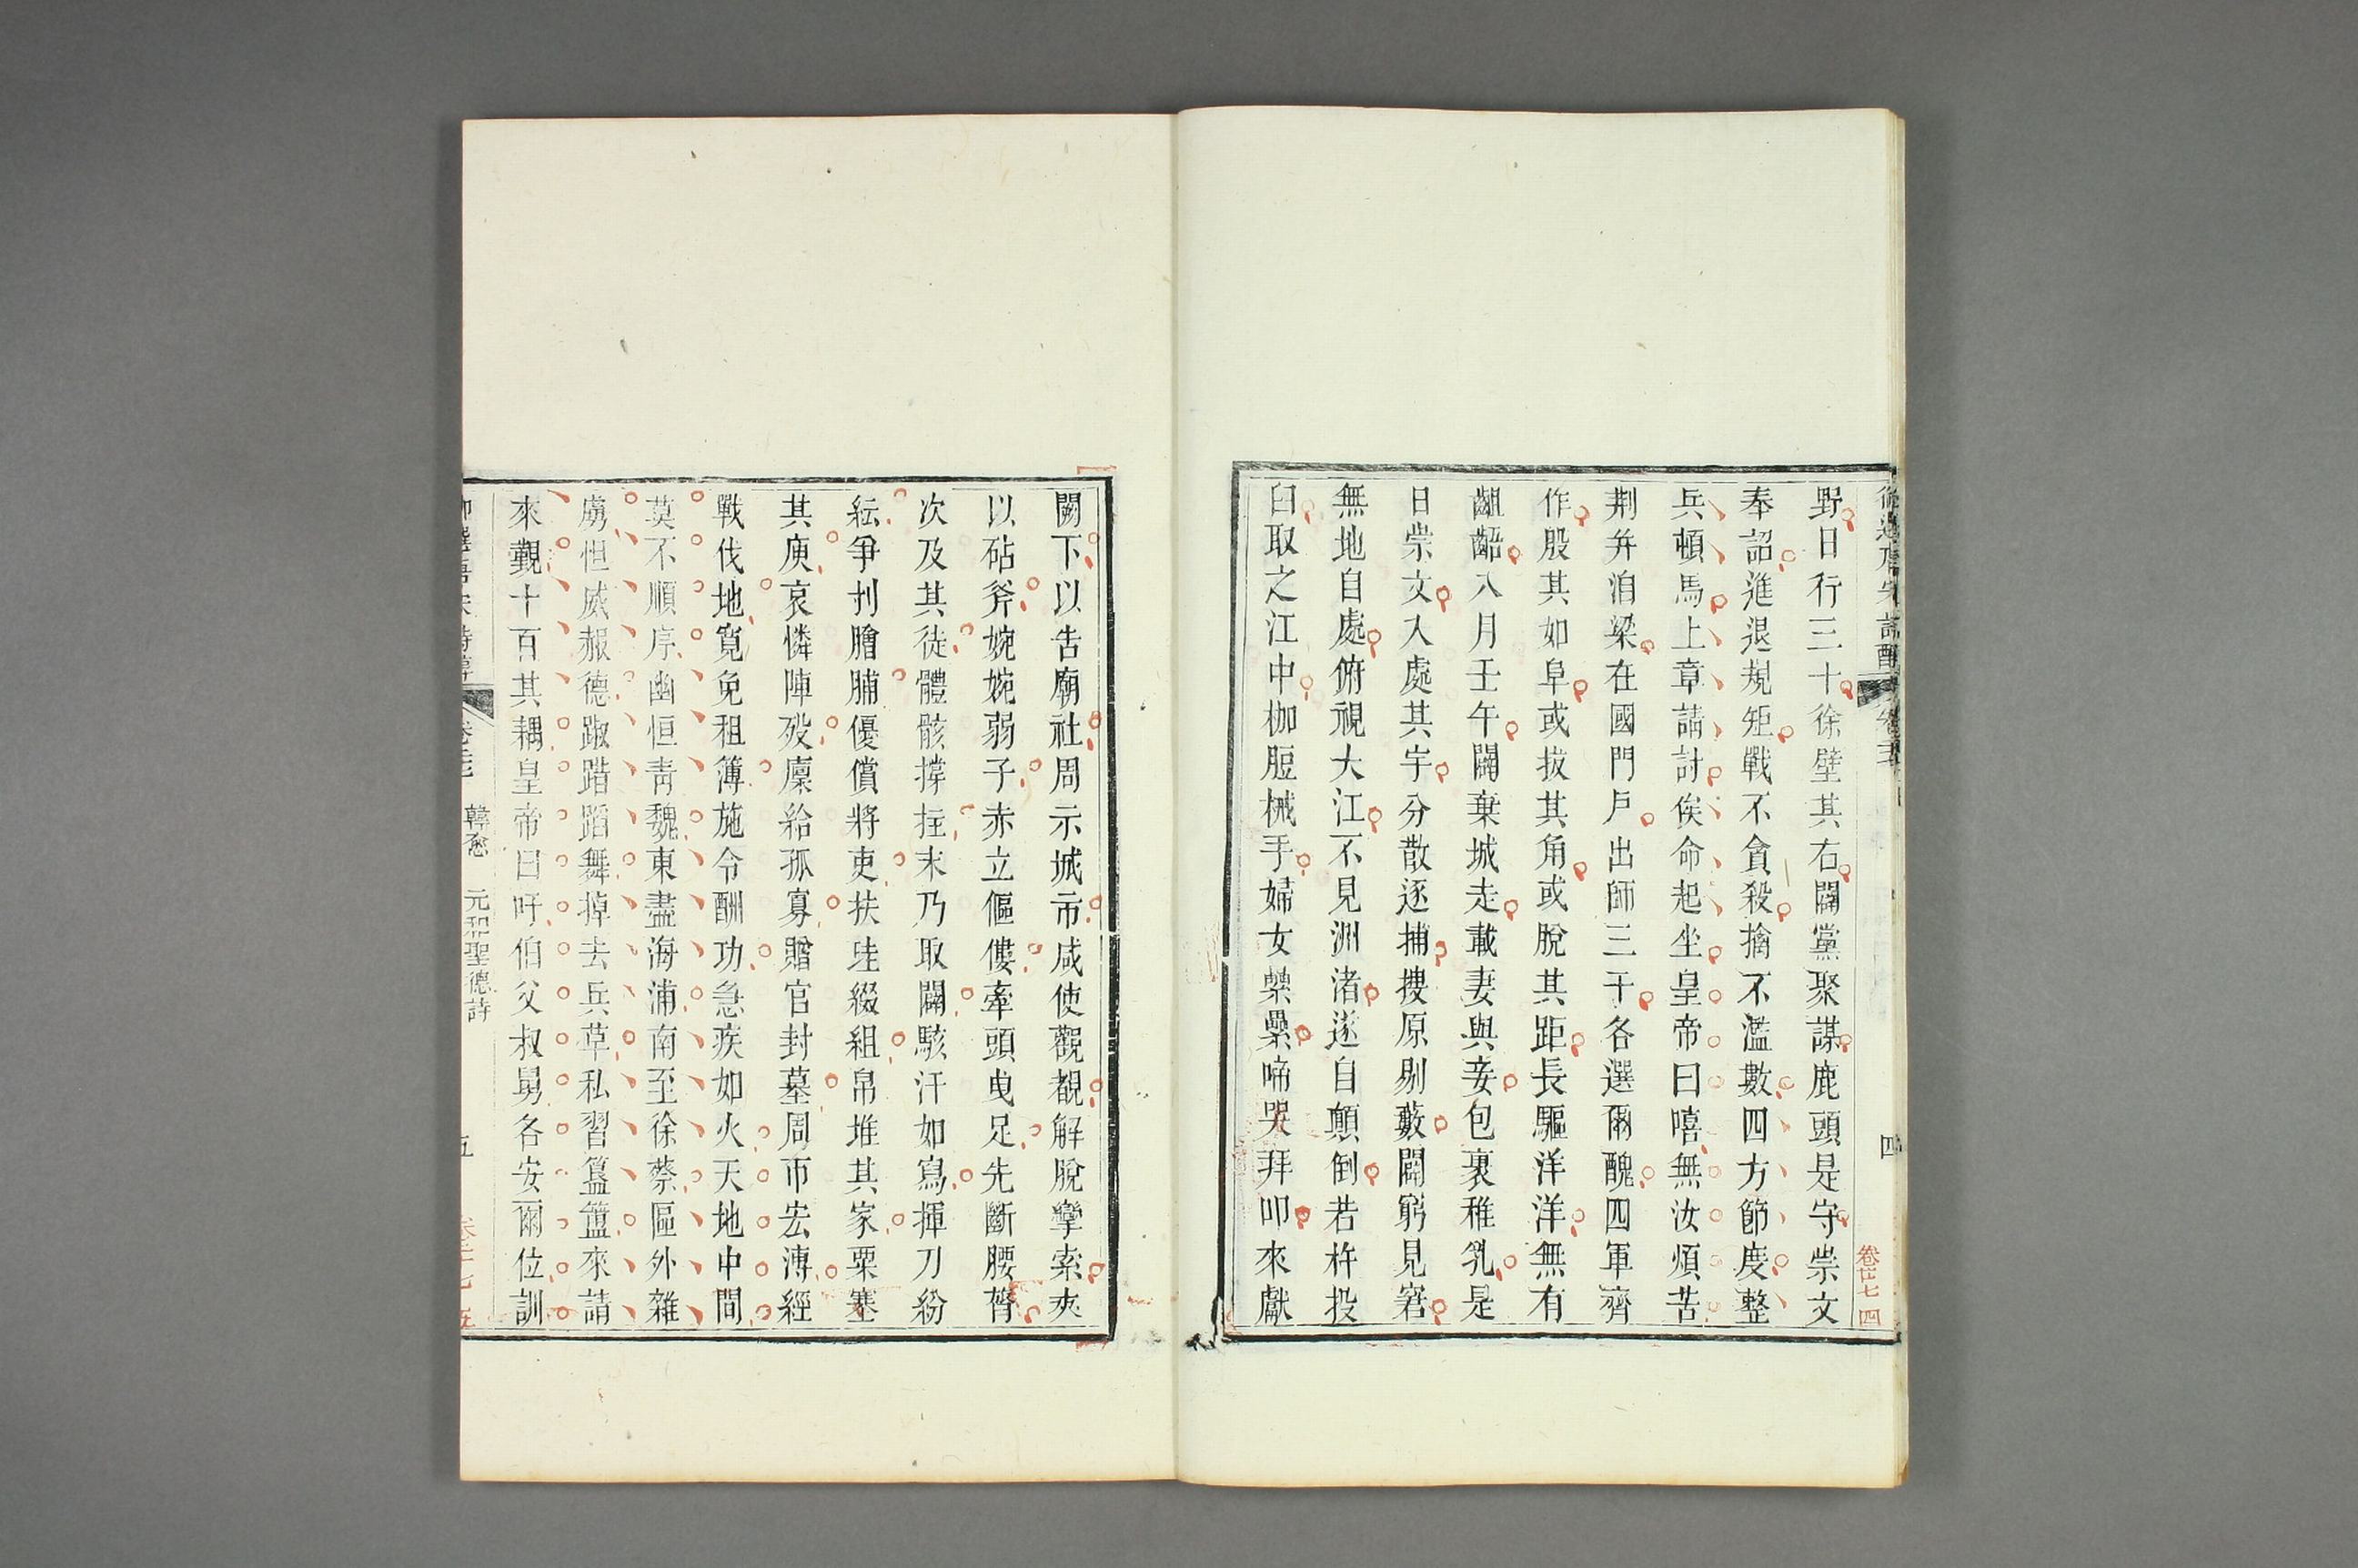 野日行三十徐壁其右闢黨聚謀鹿頭是守崇文
奉詔進退規矩戰不貪殺擒不濫數四方節度整
兵頓馬上章請討俟命起坐皇帝曰嘻無汝煩苦
荆并洎梁在國門戶出師三千各選爾醜四軍齊
作殷其如阜或拔其角或脫其距長驅洋洋無有
齟齬八月壬午闢棄城走載妻與妾包裹稚乳是
日崇文入處其宇分散逐捕搜原剔藪闢窮見窘
無地自處俯視大江不見洲渚遂自顛倒若杵投
臼取之江中枷脰械手婦女纍纍啼哭拜叩來獻
闕下以告廟社周示城市咸使觀覩解脫攣索夾
以砧斧婉婉弱子赤立傴僂牽頭曳足先斷腰膂
次及其徒體骸撐拄末乃取闢駭汗如寫揮刀紛
紜爭刌膾脯優賞將吏扶珪綴組帛堆其家粟塞
其庾哀憐陣歿廩給孤寡贈官封墓周帀宏溥經
戰伐地寬免租簿施令酬功急疾如火天地中間
莫不順序幽恒青魏東盡海浦南至徐蔡區外雜
虜怛威赧德踧踖蹈舞掉去兵草私習簋簠來請
來覲十百其耦皇帝曰吁伯父叔舅各安爾位訓
韓愈 元和聖德詩